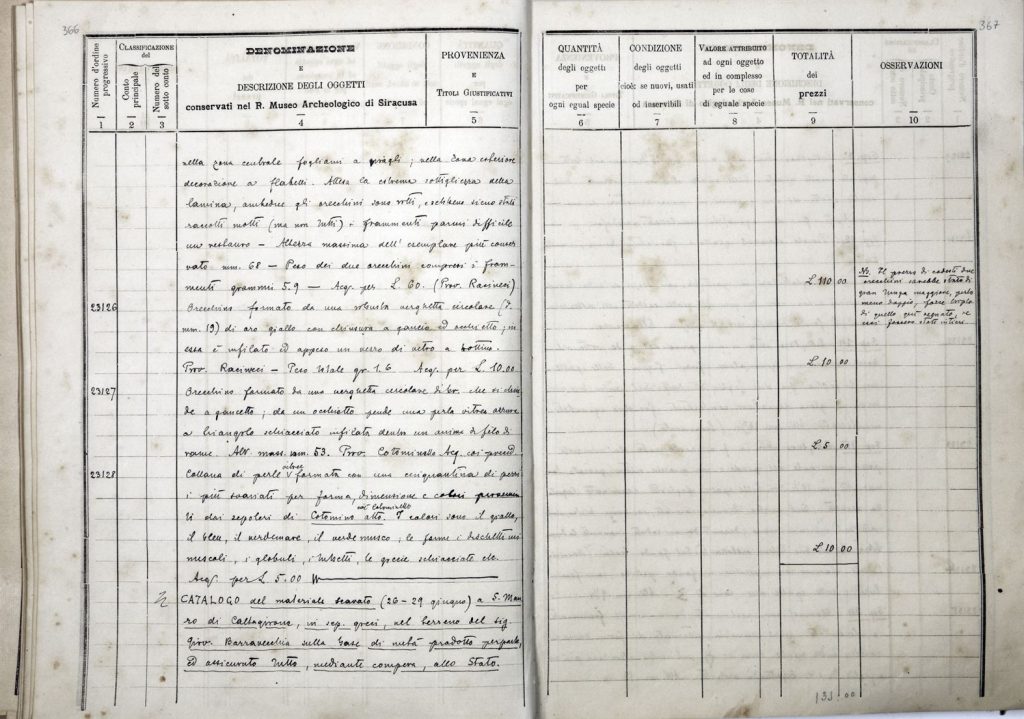 366
Numero d'ordine progressivo
CLASSIFICAZIONE del
Conto principale
Numero del sotto conto
DENOMINAZIONE
E
DESCRIZIONE DEGLI OGGETTI
conservati nel R. Museo Archeologico di Siracusa
PROVENIENZA
E
TITOLI GIUSTIFICATIVI
1 2 3 4 5
nella zona centrale fogliami a ; nella zona
decorazione a flabelli. Attesa la estrema sottigliezza della
lamina, ambedue gli orecchini sono rotti, e sebbene sieno stati
raccolti molti (ma non tutti) i frammenti parmi difficile
un restauro – Altezza massima dell' esemplare più conser
vato mm. 68 – Peso dei due orecchini compresi i fram-
menti grammi 5.9 – Acq. per L. 60. (Prov. Racineci)
23126 Orecchino formato da una robusta verghetta circolare (
mm. 19) di oro giallo con chiusura a gancio ed occhietto; in
essa è infilato ed appeso un vezzo di vetro a bottino.
Prov. Racineci – Peso totale gr. 1.6 Acq. per L. 10.00
23127 Orecchino formato da una verghetta circolare di br. che si chiu
de a gancetto; da un occhietto pende una perla vitrea
a triangolo schiacciato infilata dentro un anima di filo di
rame. Alt. mass. mm. 53. Prov. Cotominello Acq. coi preced.
23128 Collana di perle vitree formata con una cinquantina di pezzi
i più svariati per forma, dimensione e colori
ti dai sepolcri di Cotomino alto. I colori sono il giallo,
il bleu, il verdemare, il verde musco; le forme i dischetti mi
nuscoli, i globuli, i tubetti, le goccie schiacciate etc.
Acq. per L 5.00
CATALOGO del materiale scavato (26–29 giugno) a S. Mau
ro di Caltagirone, in sep. greci, nel terreno del sig.
Giov. Barravecchia sulla base di metà prodotto perparte,
ed assicurato tutto, mediante compera, allo Stato.
367
QUANTITÀ
degli oggetti
per
ogni egual specie
CONDIZIONE
degli oggetti
cioè: se nuovi, usati
od inservibili
VALORE ATTRIBUITO
ad ogni oggetto
ed in complesso
per le cose
di eguale specie
TOTALITÀ
dei
prezzi
OSSERVAZIONI
6 7 8 9 10
L. 110 00
NB. Il prezzo di codesti due
orecchini sarebbe stato di
gran lunga maggiore, perlo
meno doppio, forse triplo
di quello qui segnato, se
essi fossero stati interi.
L. 10 00
L 5 00
L 10 00
135 00